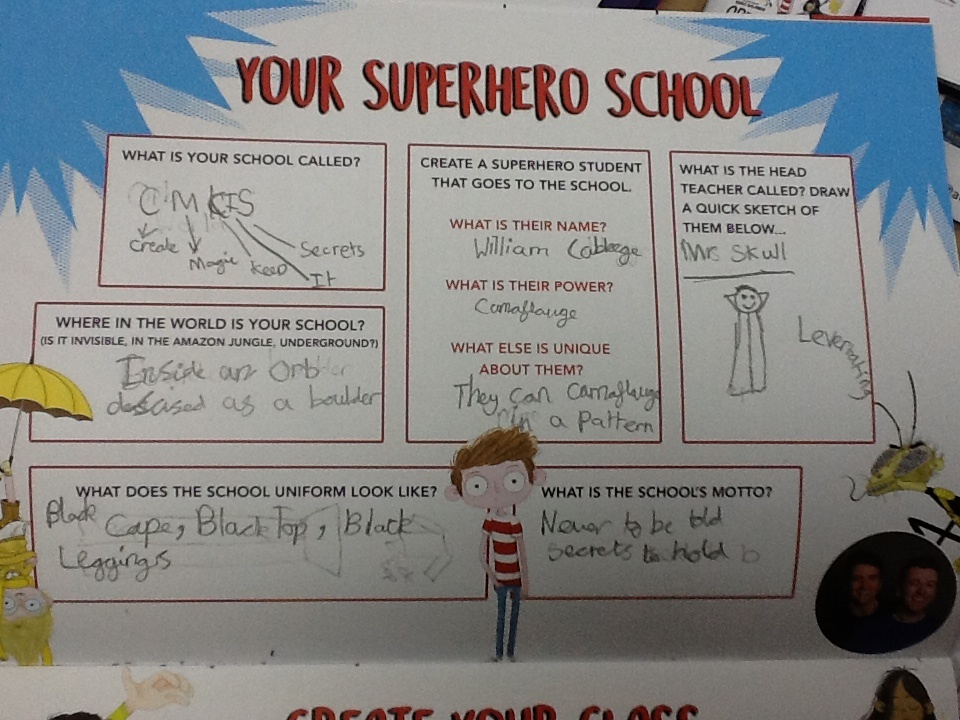 YOUR SUPERHERO SCHOOL
WHAT IS YOUR SCHOOL CALLED?
CMKIS
Create
Magic
Keep
It
Secrets
CREATE A SUPERHERO STUDENT
THAT GOES TO THE SCHOOL.
WHAT IS THEIR NAME?
William Cabbege
WHAT IS THEIR POWER?
Camaflauge
WHAT ELSE IS UNIQUE
ABOUT THEM?
They can camaflauge
in a Pattern
WHAT IS THE HEAD
TEACHER CALLED? DRAW
A QUICK SKETCH OF
THEM BELOW...
Mrs Skull
Leverating
WHERE IN THE WORLD IS YOUR SCHOOL?
(IS IT INVISIBLE, IN THE AMAZON JUNGLE, UNDERGROUND?)
Inside an Orb
as a boulder
WHAT DOES THE SCHOOL UNIFORM LOOK LIKE?
Black Cape, Black Top, Black
Leggings
WHAT IS THE SCHOOL'S MOTTO?
Never to be told
Secrets to hold
CREATE YOUR CLASS